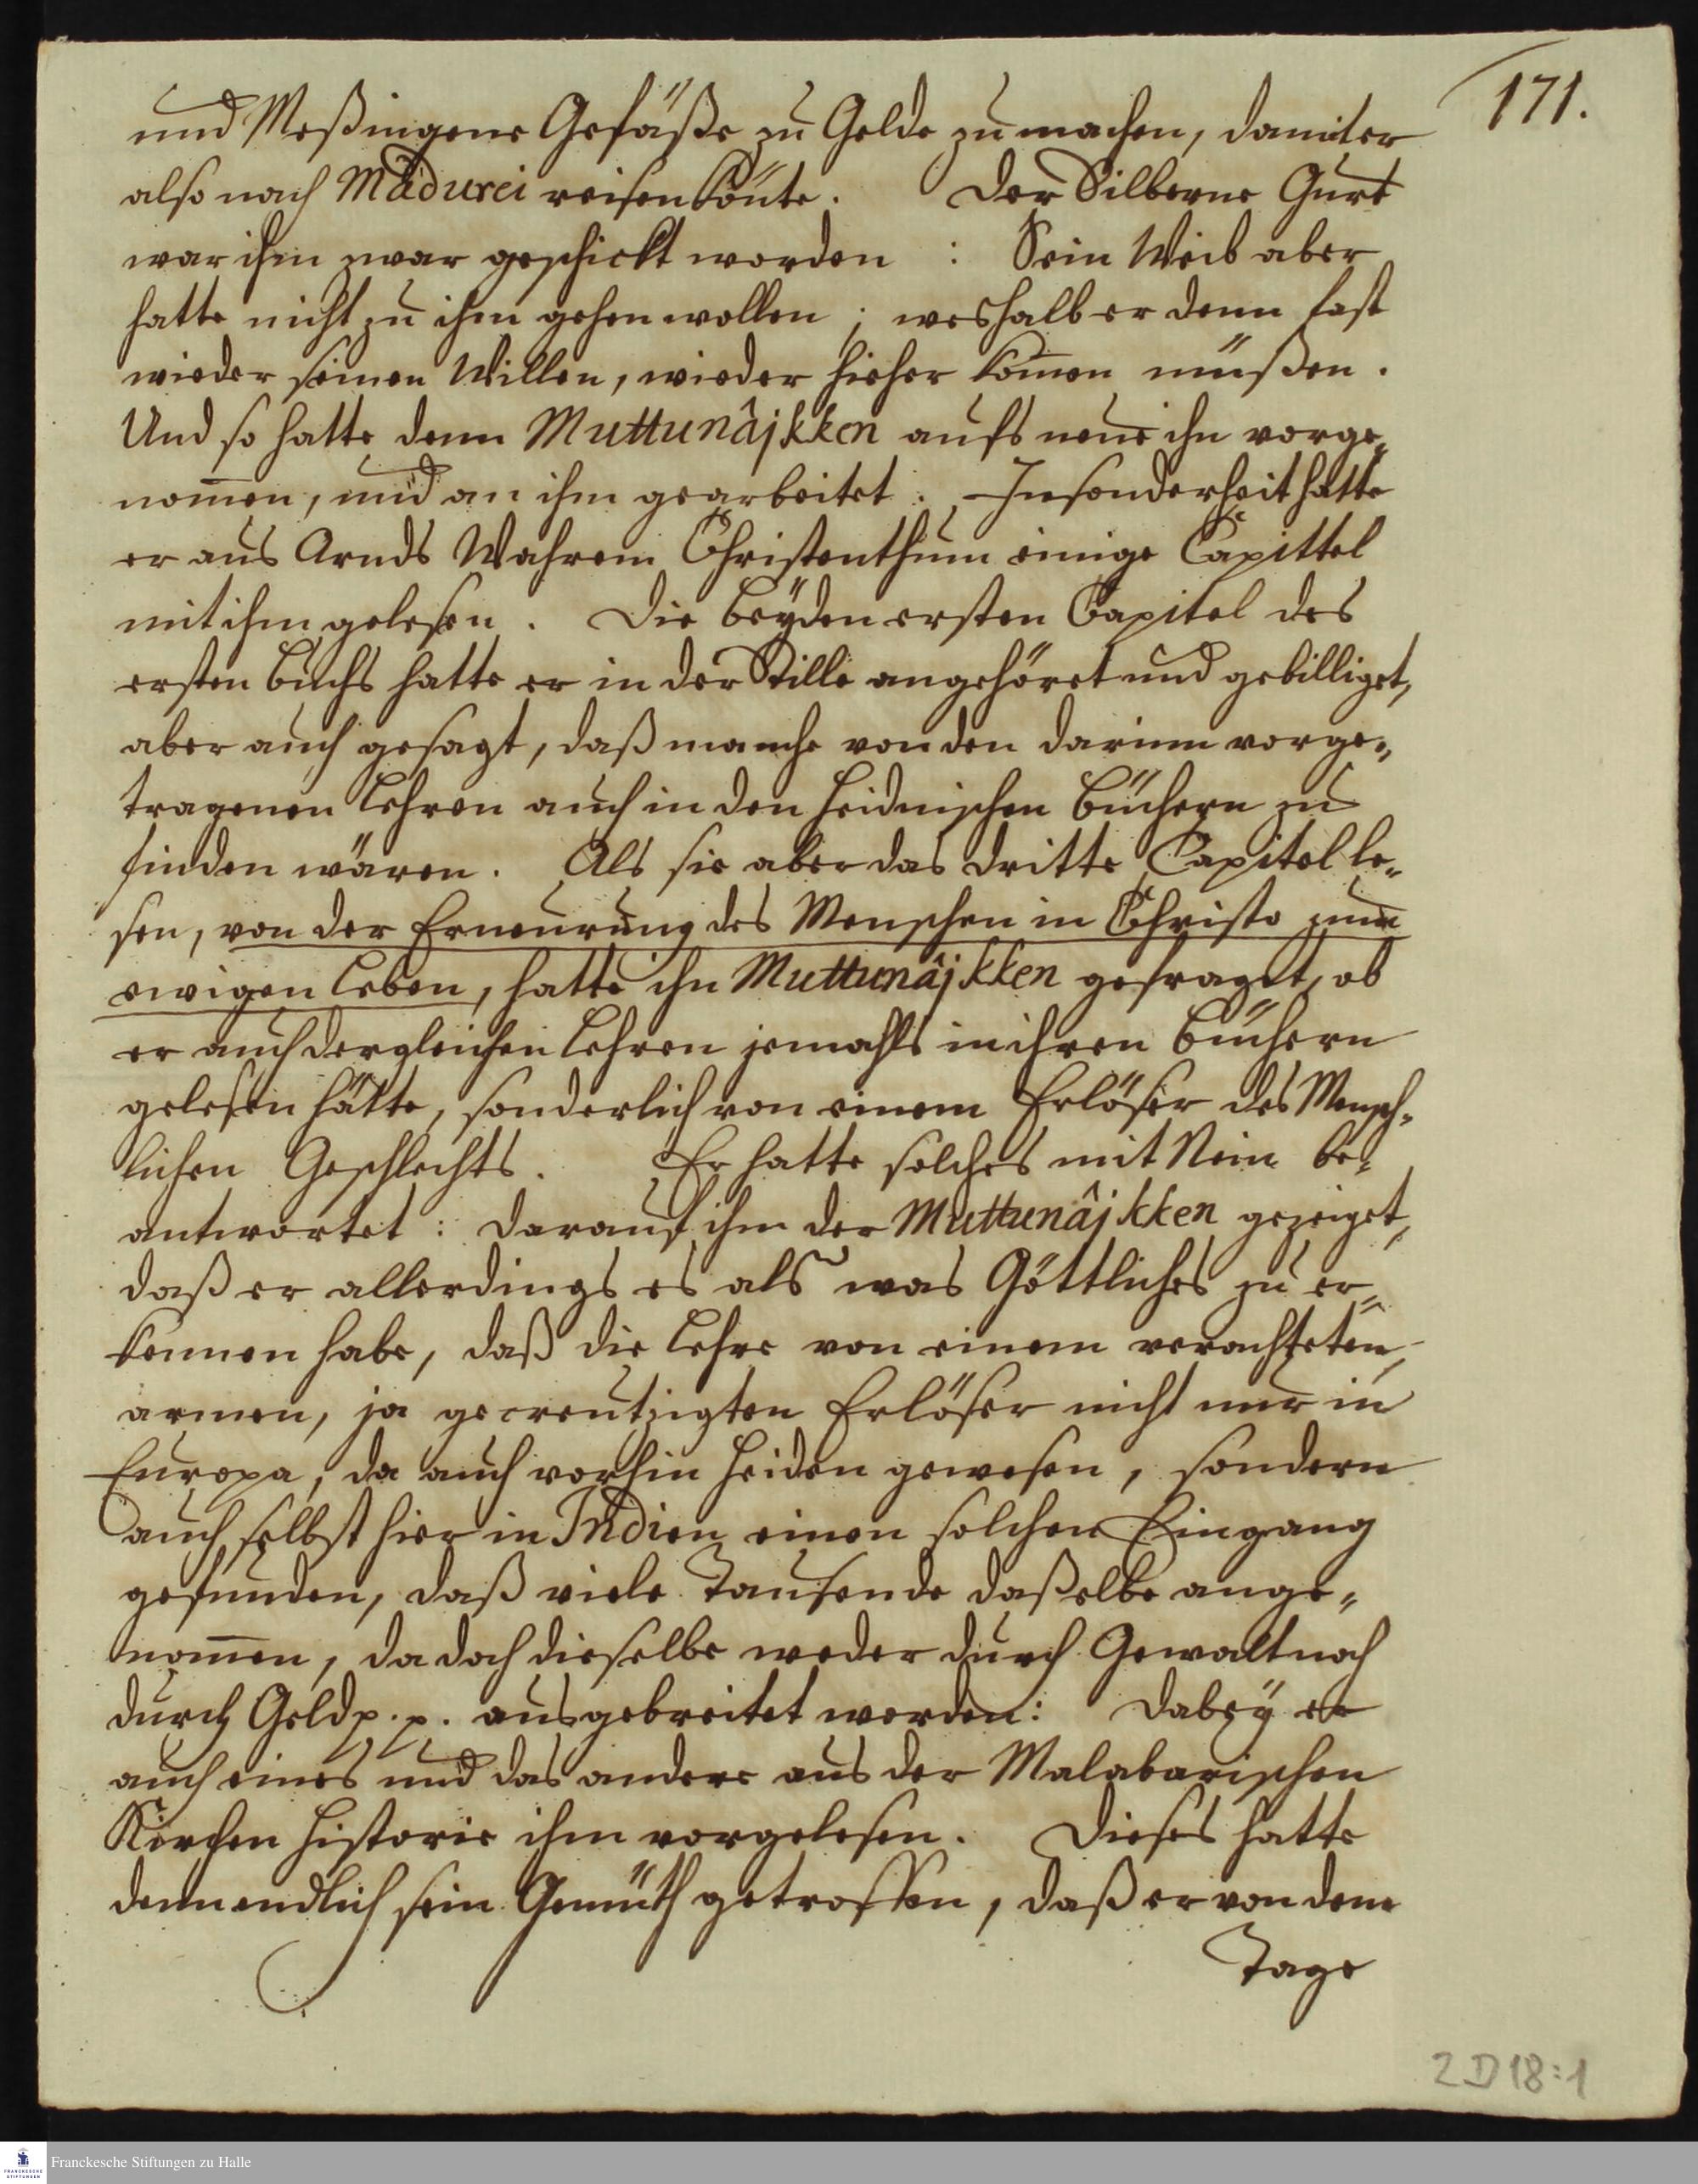 171.
und Meßingene Gefäße zu Gelde zu machen, damit er
also nach Mâdurei reisen könte. Der Silberne Gurt
war ihm zwar geschickt worden : Sein Weib aber
hatte nicht zu ihm gehen wollen ; weshalb er denn fast
wieder seinen Willen, wieder hieher kom̅en müßen.
Und so hatte denn Muttunâjkken aufs neue ihn vorge„
nom̅en, und an ihm gearbeitet. Insonderheit hatte
er aus Arnds Wahrem Christenthum einige Capittel
mit ihm gelesen. Die beyden ersten Capitel des
ersten Buchs hatte er in der Stille angehöret und gebilliget,
aber auch gesagt, daß manche von den darinn vorge„
tragenen Lehren auch in den Heidnischen Büchern zu
finden wären. Als sie aber das dritte Capitel le„
sen, von der Erneurung des Menschen in Christo zum
ewigen Leben, hatte ihn Muttunâjkken gefraget, ob
er auch dergleichen Lehren jemahls in ihren Büchern
gelesen hätte, sonderlich von einem Erlöser des Mensch„
lichen Geschlechts. Er hatte solches mit Nein be„
antwortet : darauf ihm der Muttunâjkken gezeiget,
daß er allerdings es als was Göttliches zu er„
kennen habe, daß die Lehre von einem verachteten,
armen, ja gecreutzigten Erlöser nicht nur in
Europa, da auch vorhin Heiden gewesen, sondern
auch selbst hier in Indien einen solchen Eingang
gefunden, daß viele Tausende daßelbe ange„
nom̅en, da doch dieselbe weder durch Gewalt noch
durch Geld p. p. ausgebreitet worden : Dabey er
auch eines und das andere aus der Malabarischen
Kirchen Historie ihm vorgelesen. Dieses hatte
denn endlich sein Gemüth getroffen, daß er von dem
Tage
2 D 18 : 1
Franckesche Stiftungen zu Halle
FRANCKESCHE
STIFTUNGEN